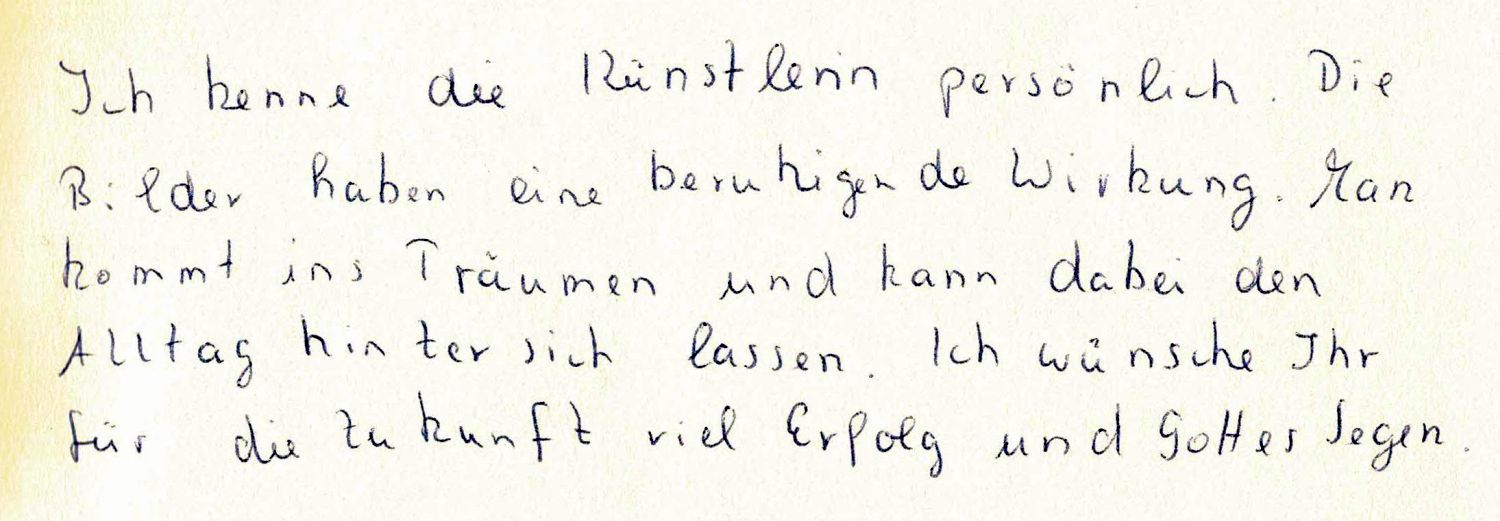 Ich kenne die Künstlerin persönlich. Die
Bilder haben eine beruhigende Wirkung. Man
kommt ins Träumen und kann dabei den
Alltag hinter sich lassen. Ich wünsche Ihr
für die Zukunft viel Erfolg und Gottes Segen.